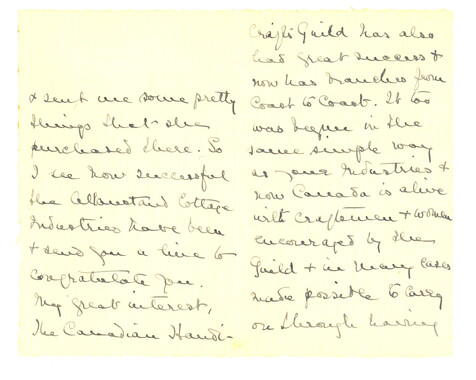 & sent me some pretty
things that she
purchased there. So
I see how successful
the Allanstand Cottage
Industries have been
& send you a line to
congratulate you.
My great interest,
The Canadian Handi-
crafts Guild has also
had great success &
now has branches from
Coast to Coast. It too
was begun in the
same simple way
as your Industries &
now Canada is alive
with craftsmen & women
encouraged by the
Guild & in many cases
made possible to carry
on through having